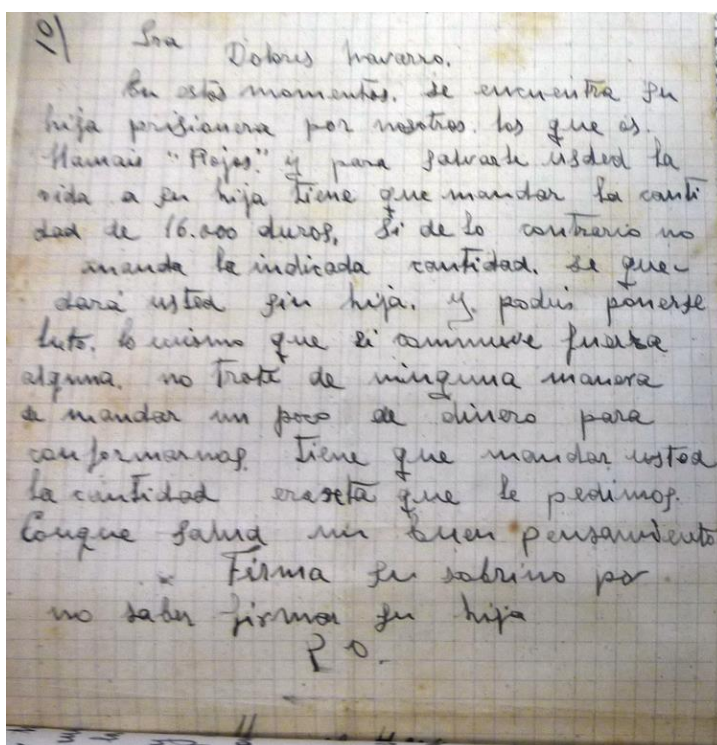 10)
Sra Dolores Navarro.
En estos momentos. se encuentra su
hija prisionera por nosotros. los que os.
llamais "Rojos." y para salvarle usded la
vida a su hija tiene que mandar la canti
dad de 16.000 duros, Si de lo contrario no
manda la indicada cantidad. se que-
dará usted sin hija. y. podeis ponerse
luto. lo mismo que si conmueve fuerza
alguna. no trate de ninguna manera
de mandar un poco de dinero para
conformarnos. tiene que mandar usted
la cantidad que le pedimos.
Conque salud un buen pensamiento
Firma su sobrino por
no saber firmar su hija
P O.